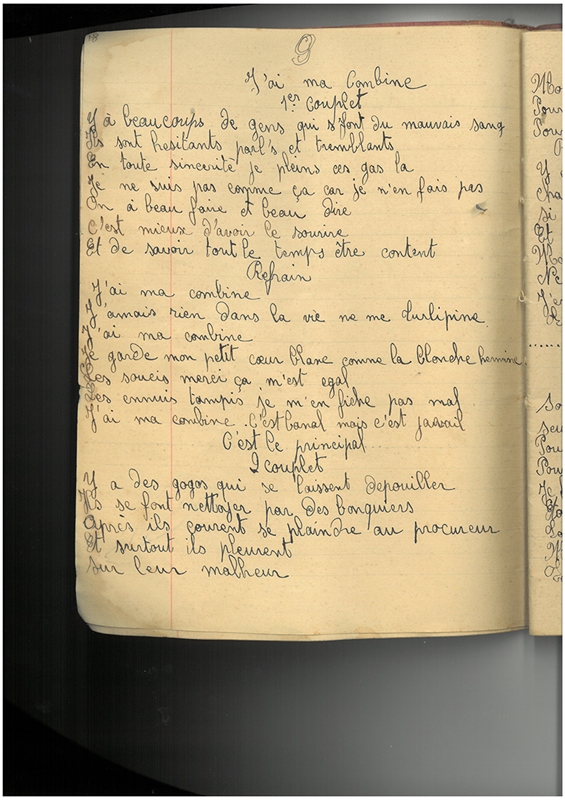 9
J'ai ma Combine
1er Couplet
Y à beaucoups de gens qui s'font du mauvais sang
Ils sont hesitants parl's et tremblants
En toute sincerité je pleins ces gas la
Je ne suis pas comme ça car je n'en fais pas
On à beau faire et beau dire
C'est mieux d'avoir le sourire
Et de savoir tout le temps être content
Refrain
J'ai ma combine
J'amais rien dans la vie ne me turlipine
J'ai ma combine
Je garde mon petit cœur blanc comme la blanche hermine
Les soucis merci ça m'est egal
Les ennuis tampis je m'en fiche pas mal
J'ai ma combine. C'est banal mais c'est jovial
C'est le principal
2 couplet
Y a des gogos qui se laissent depouiller
Ils se font nettoyer par des banquiers
Après ils courent se plaindre au procureur
Et surtout ils pleurent
Sur leur malheur